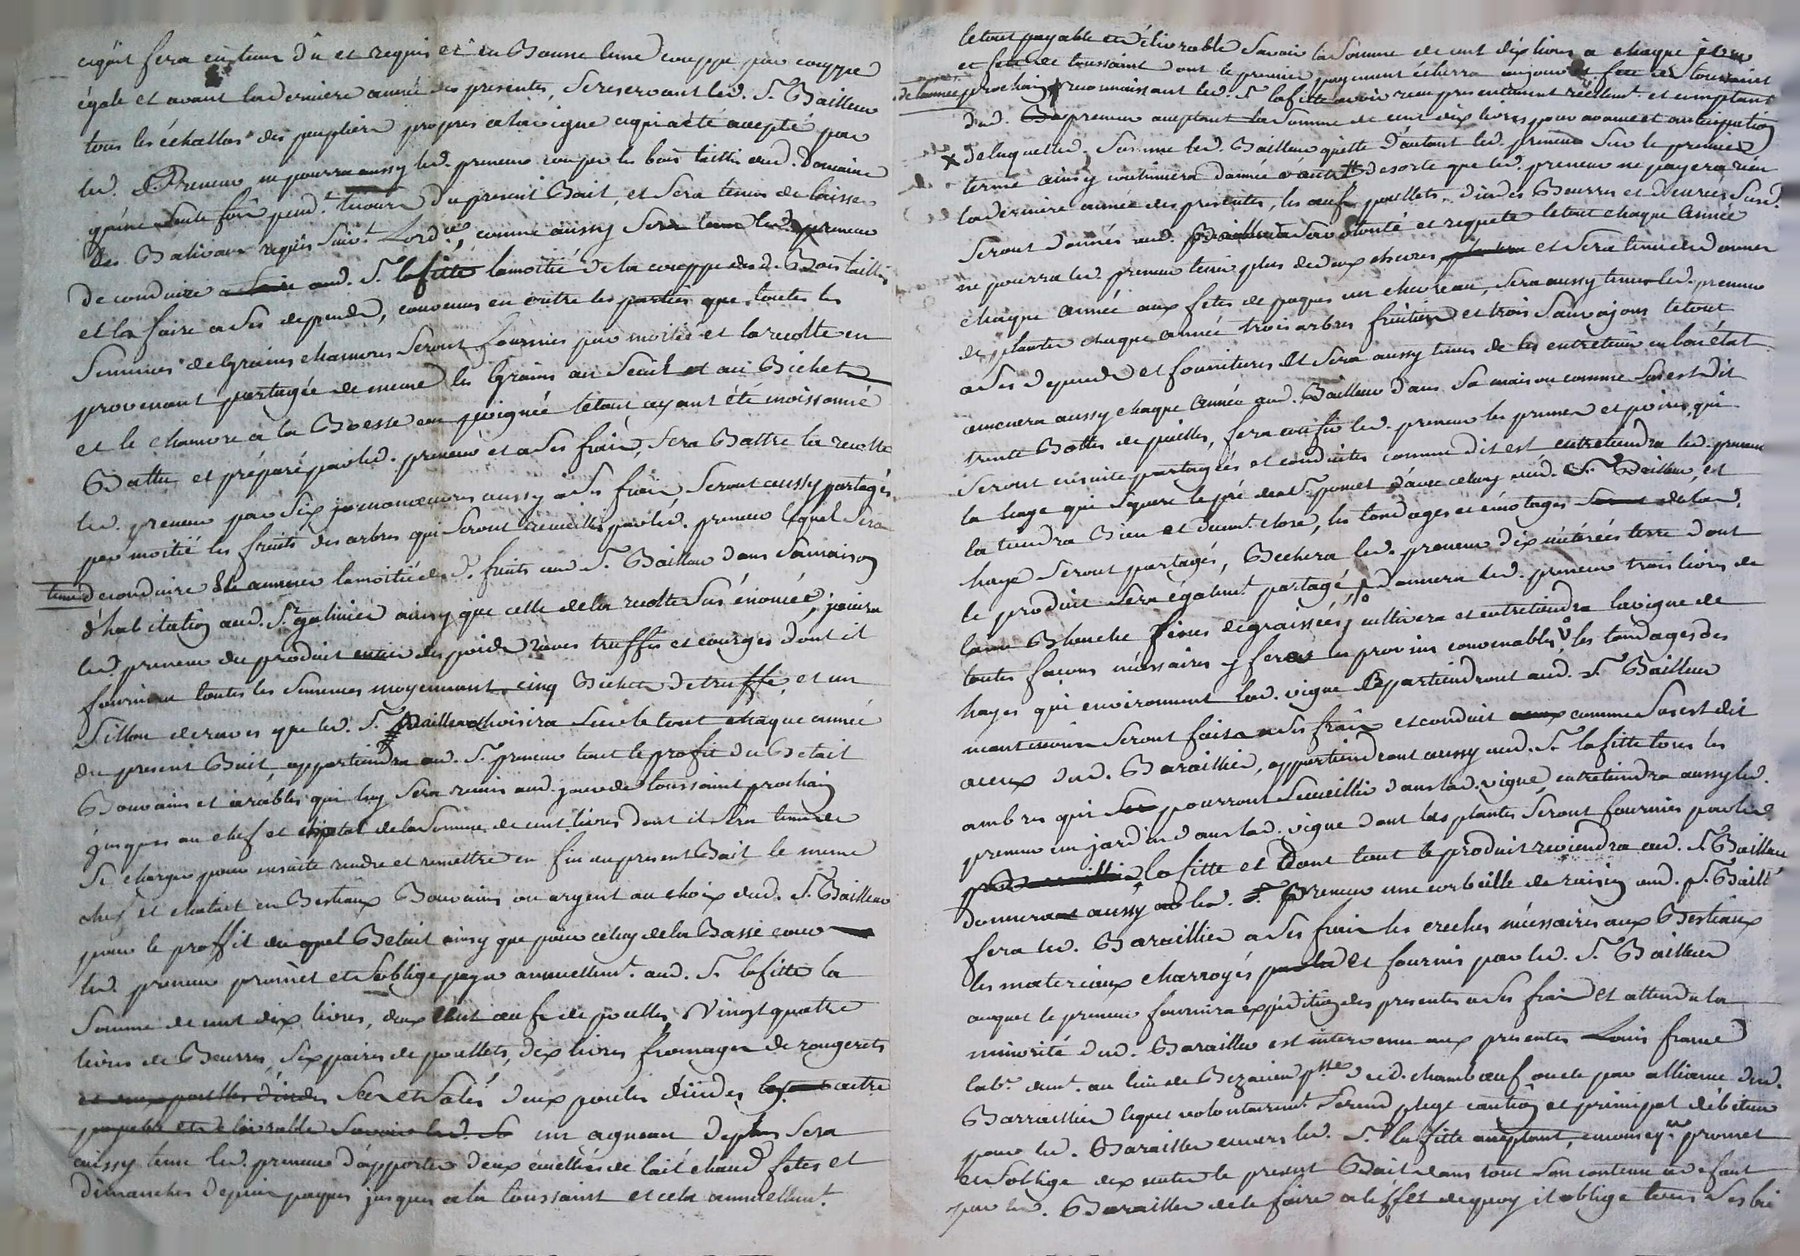 ciquit sera en tems dû et requis et en Bonne lune couppé par couppe
égale et avant la derniere année des presentes, se reservant led. Sr. Bailleur
tous les échallas des peupliers propres a la vigne ce qui a été accepté par
led. Preneur ne pourra aussy led. preneur couper les bois taillis dud. Domaine
qu'une seule fois pendt. le cours du present Bail, et sera tenu de laisser
des Baliveaux requis suivt. Lordce, comme aussy sera tenu led. preneur
de conduire aud. Sr. lafitte la moitié de la couppe desd. Bois taillis
et la faire a ses depends, convenus en outre les parties que toutes les
Semences de Grains chanvres seront fournies par moitié et la recolte en
provenant partagée de meme les Grains au Seuil et au Bichet
et le chanvre a la Besse ou poignée letout ayant été moissonné
Battu et préparé par led. preneur et a ses frais, sera Battre la recolte
led. preneur par six manoeuvres aussy a ses frais, seront aussy partagés
par moitié les fruits des arbres qui seront recueillis par led. preneur lequel sera
tenu de conduire et amener la moitié desd. fruits aud. Sr. Bailleur dans sa maison
d'habitation aud. St. galmier ainsy que celle de la recolte sus énoncée, jouira
led. preneur du produit entier des pois raves truffes et courges dont il
fournira toutes les semences moyennant cinq Bichets de truffe, et un
Sillon de raves que led. Sr. Bailleur choisira sur le tout chaque année
du present Bail appartiendra aud. Sr. preneur tout le profit du Betail
Bouvains et arables qui luy sera remis aud. jour de toussaint prochain
jusques au chef et chptal de la somme de cent livres dont il sera tenu de
se charger pour ensuite rendre et remettre en fin du present Bail le meme
chef et chatail en Bestiaux Bouvains ou argent au choix dud. Sr. Bailleur
pour le proffit du quel Betail ainsy que pour celuy de la Basse cour
led. preneur promet et s'oblige payer annuellemt. aud. Sr. lafitte la
Somme de cent dix livres, deux cent oeufs de poulles, Vingt quatre
livres de Beurre, six paires de poullets, dix livres fromages de rougerets
et deux poulles d'indes Sec et Salés deux poules d'indes le tout outre
payable et délivrable Savoir led. Sr un agneau de plus sera
aussy tenu led. preneur d'apporter deux écuellées de lait chaud fetes et
dimanches depuis paques jusques a la toussaint et cela annuellemt.
letout payable et délivrable Savoir la somme de cent dix livres a chaque jour
et fete de toussaint dont le premier payement écherra au jour et fete de toussaint
de l'année prochaine reconnaissant led. Sr lafitte avoir reçu presentement reellemt. et comptant
dud. preneur acceptant la somme de cent dix livres pour avance et anticipation
de laquelle somme led. Bailleur quitte d'autant led. preneur sur le premier
terme ainsy continuera d'année a autre desorte que led. preneur ne payera rien
la derniere année des presentes, les oeufs poullets, dindes Beurres et denrées susd.
Seront données aud. Bailleur a sa volonté et requete letout chaque année
ne pourra led. preneur tenir plus de deux chevres et sera tenu de donner
chaque année aux fetes de paques un chevreau, sera aussy tenu led. preneur
de planter chaque année trois arbres fruitiers et trois Sauvajons letout
a ses depends et fournitures et sera aussy tenu de les entretenir en bon état
amenera aussy chaque année aud. Bailleur dans sa maison comme sus est dit
trente Bottes de pailles, sera cueillir led. preneur les prunes et poires qui
seront ensuite partagés et conduites comme dit est entretiendra led. preneur
la haye qui separe le pré de St. pomet d'avec celuy aud. Sr. Bailleur, et
la tiendra Bien et duemt. close, les tondages et émotages de lad.
haye seront partagés, Bechera led. preneur dix métérées terre dont
le produit sera égalemt. partagé, donnera led. preneur trois livres de
laine Blanche fines degraissées, cultivera et entretiendra la vigne de
toutes façons nécessaires y fera les provins convenables, les tondages des
hayes qui environnent lad. vigne appartiendront aud. Sr. Bailleur
neant moins seront faits a ses frais et conduit comme sus est dit
a ceux dud. Baraillier, appartiendront aussy aud. Sr. lafitte tous les
ambres qui se pourront recueillir dans lad. vigne, entretiendra aussy led.
preneur un jardin dans lad. vigne dont les plantes seront fournies par led.
lafitte et dont tout le produit reviendra aud. Sr. Bailleur
donnera aussy led. preneur une corbeille de raisin aud. Sr. Baillr
fera led. Baraillier a ses frais les creches nécessaires aux Bestiaux
les materiaux charroyés et fournis par led. Sr. Bailleur
auquel le preneur fournira expédition des presentes a ses frais et attendu la
minorité dud. Baraillier est intervenu aux presentes Louis france
labr. demt. au lieu de Bezacieu psse dud. chamboeuf oncle par alliance dud.
Barraillier lequel volontairemt. se rend plege caution et principal débiteur
pour led. Baraillier envers led. Sr. lafitte acceptant, promet
et s'oblige dexecuter le present Bail dans tout son contenu a defaut
par led. Baraillier de le faire a l'effet de quoy il oblige tous ses bi